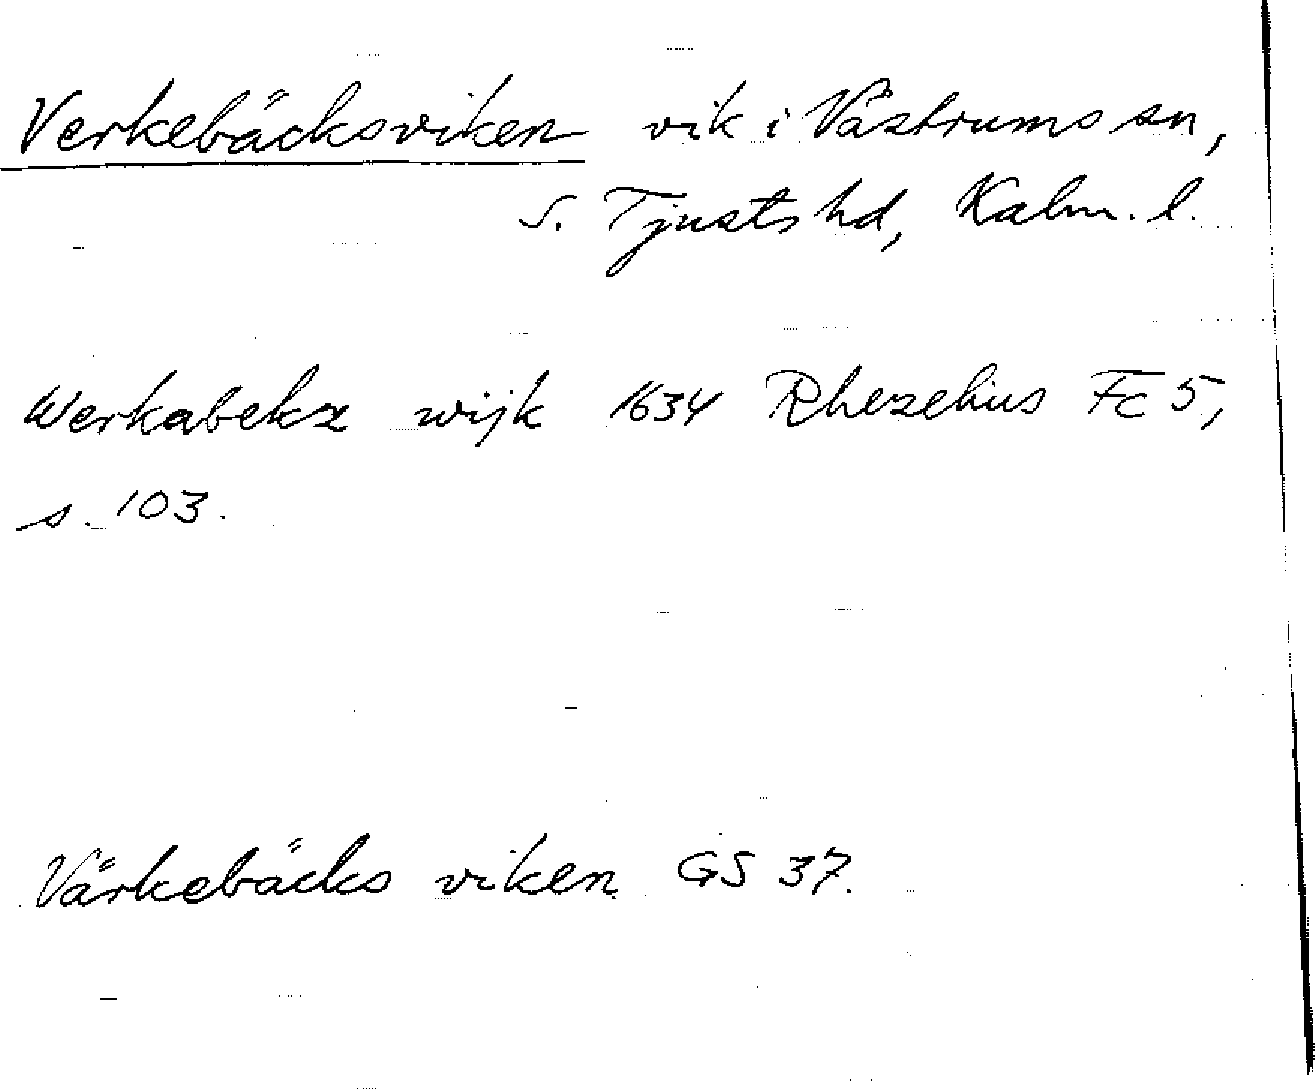 Verkebäcksviken vik i Västrums sn,
S. Tjusts hd, Kalm. l.
Werkabekz wijk 1634 Rhezelius Fc 5,
s. 103.
Värkebäcks viken GS 37.